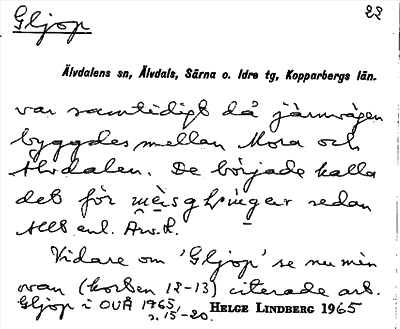 Gljop
22
Älvdalens sn, Älvdals, Särna o. Idre tg, Kopparbergs län.
var samtidigt då järnvägen
byggdes mellan Mora och
Älvdalen. De började kalla
det för gljingear sedan
allt enl. Arw. L.
Vidare om 'Gljop' se nu min
ovan (korten 12-13) citerade art.
Gljop i OUÅ 1965,
s. 15-20.
HELGE LINDBERG 1965